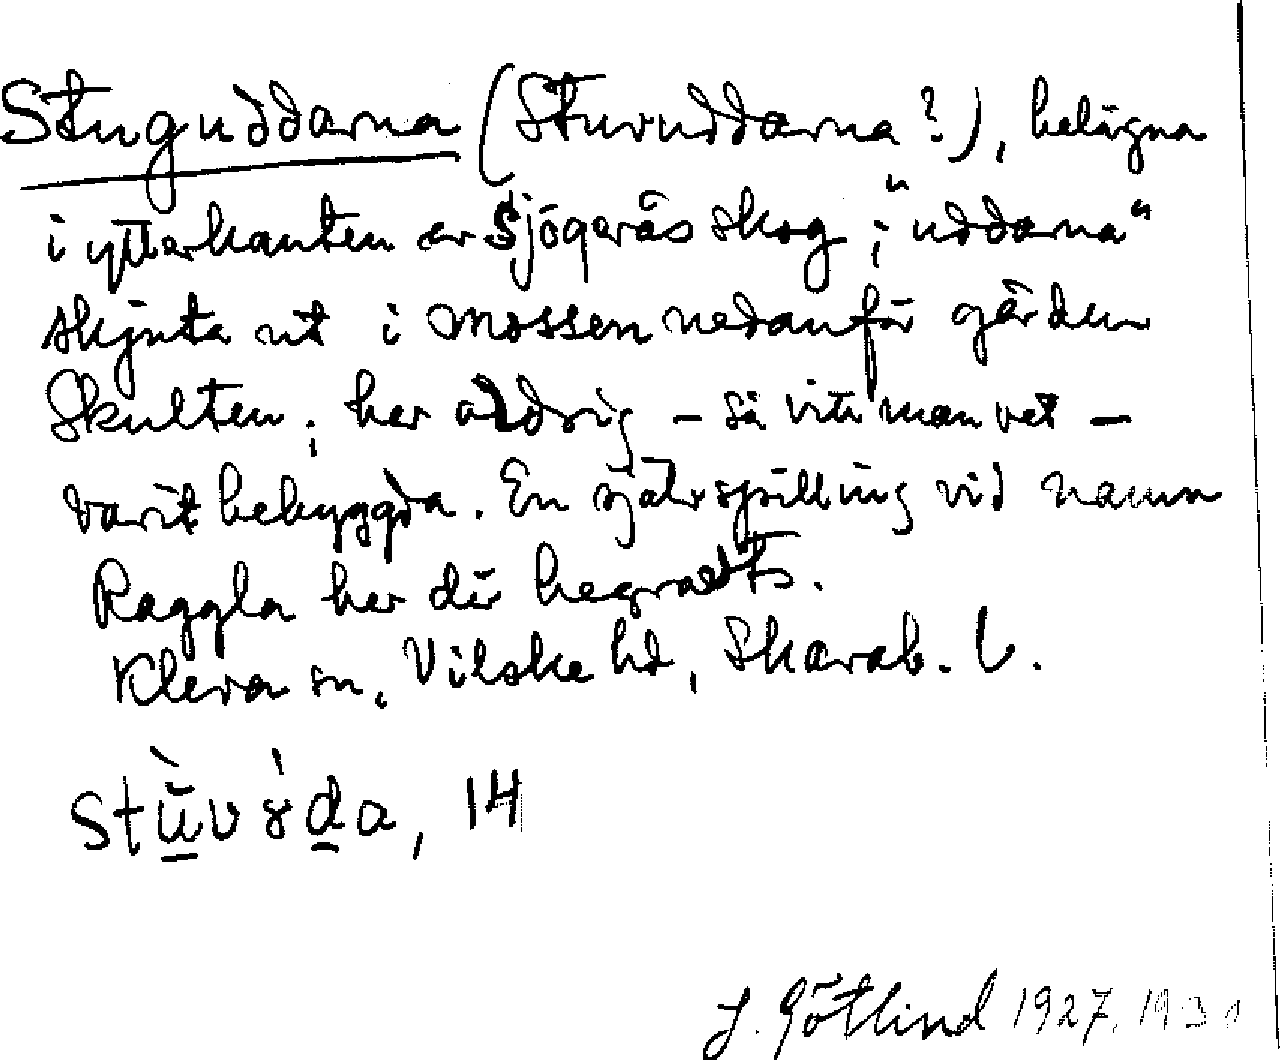 Stuguddarna (Stuvuddarna?), belägna
i ytterkanten av Sjögerås skog; "uddarna"
skjuta ut i mossen nedanför gården
Skulten; har aldrig – så vitt man vet –
varit bebyggda. En självspilling vid namn
Raggla har där begravts.
Kleva sn, Vilske hd, Skarab. l.
stùvóda, 14
J. Götlind 1927, 1931